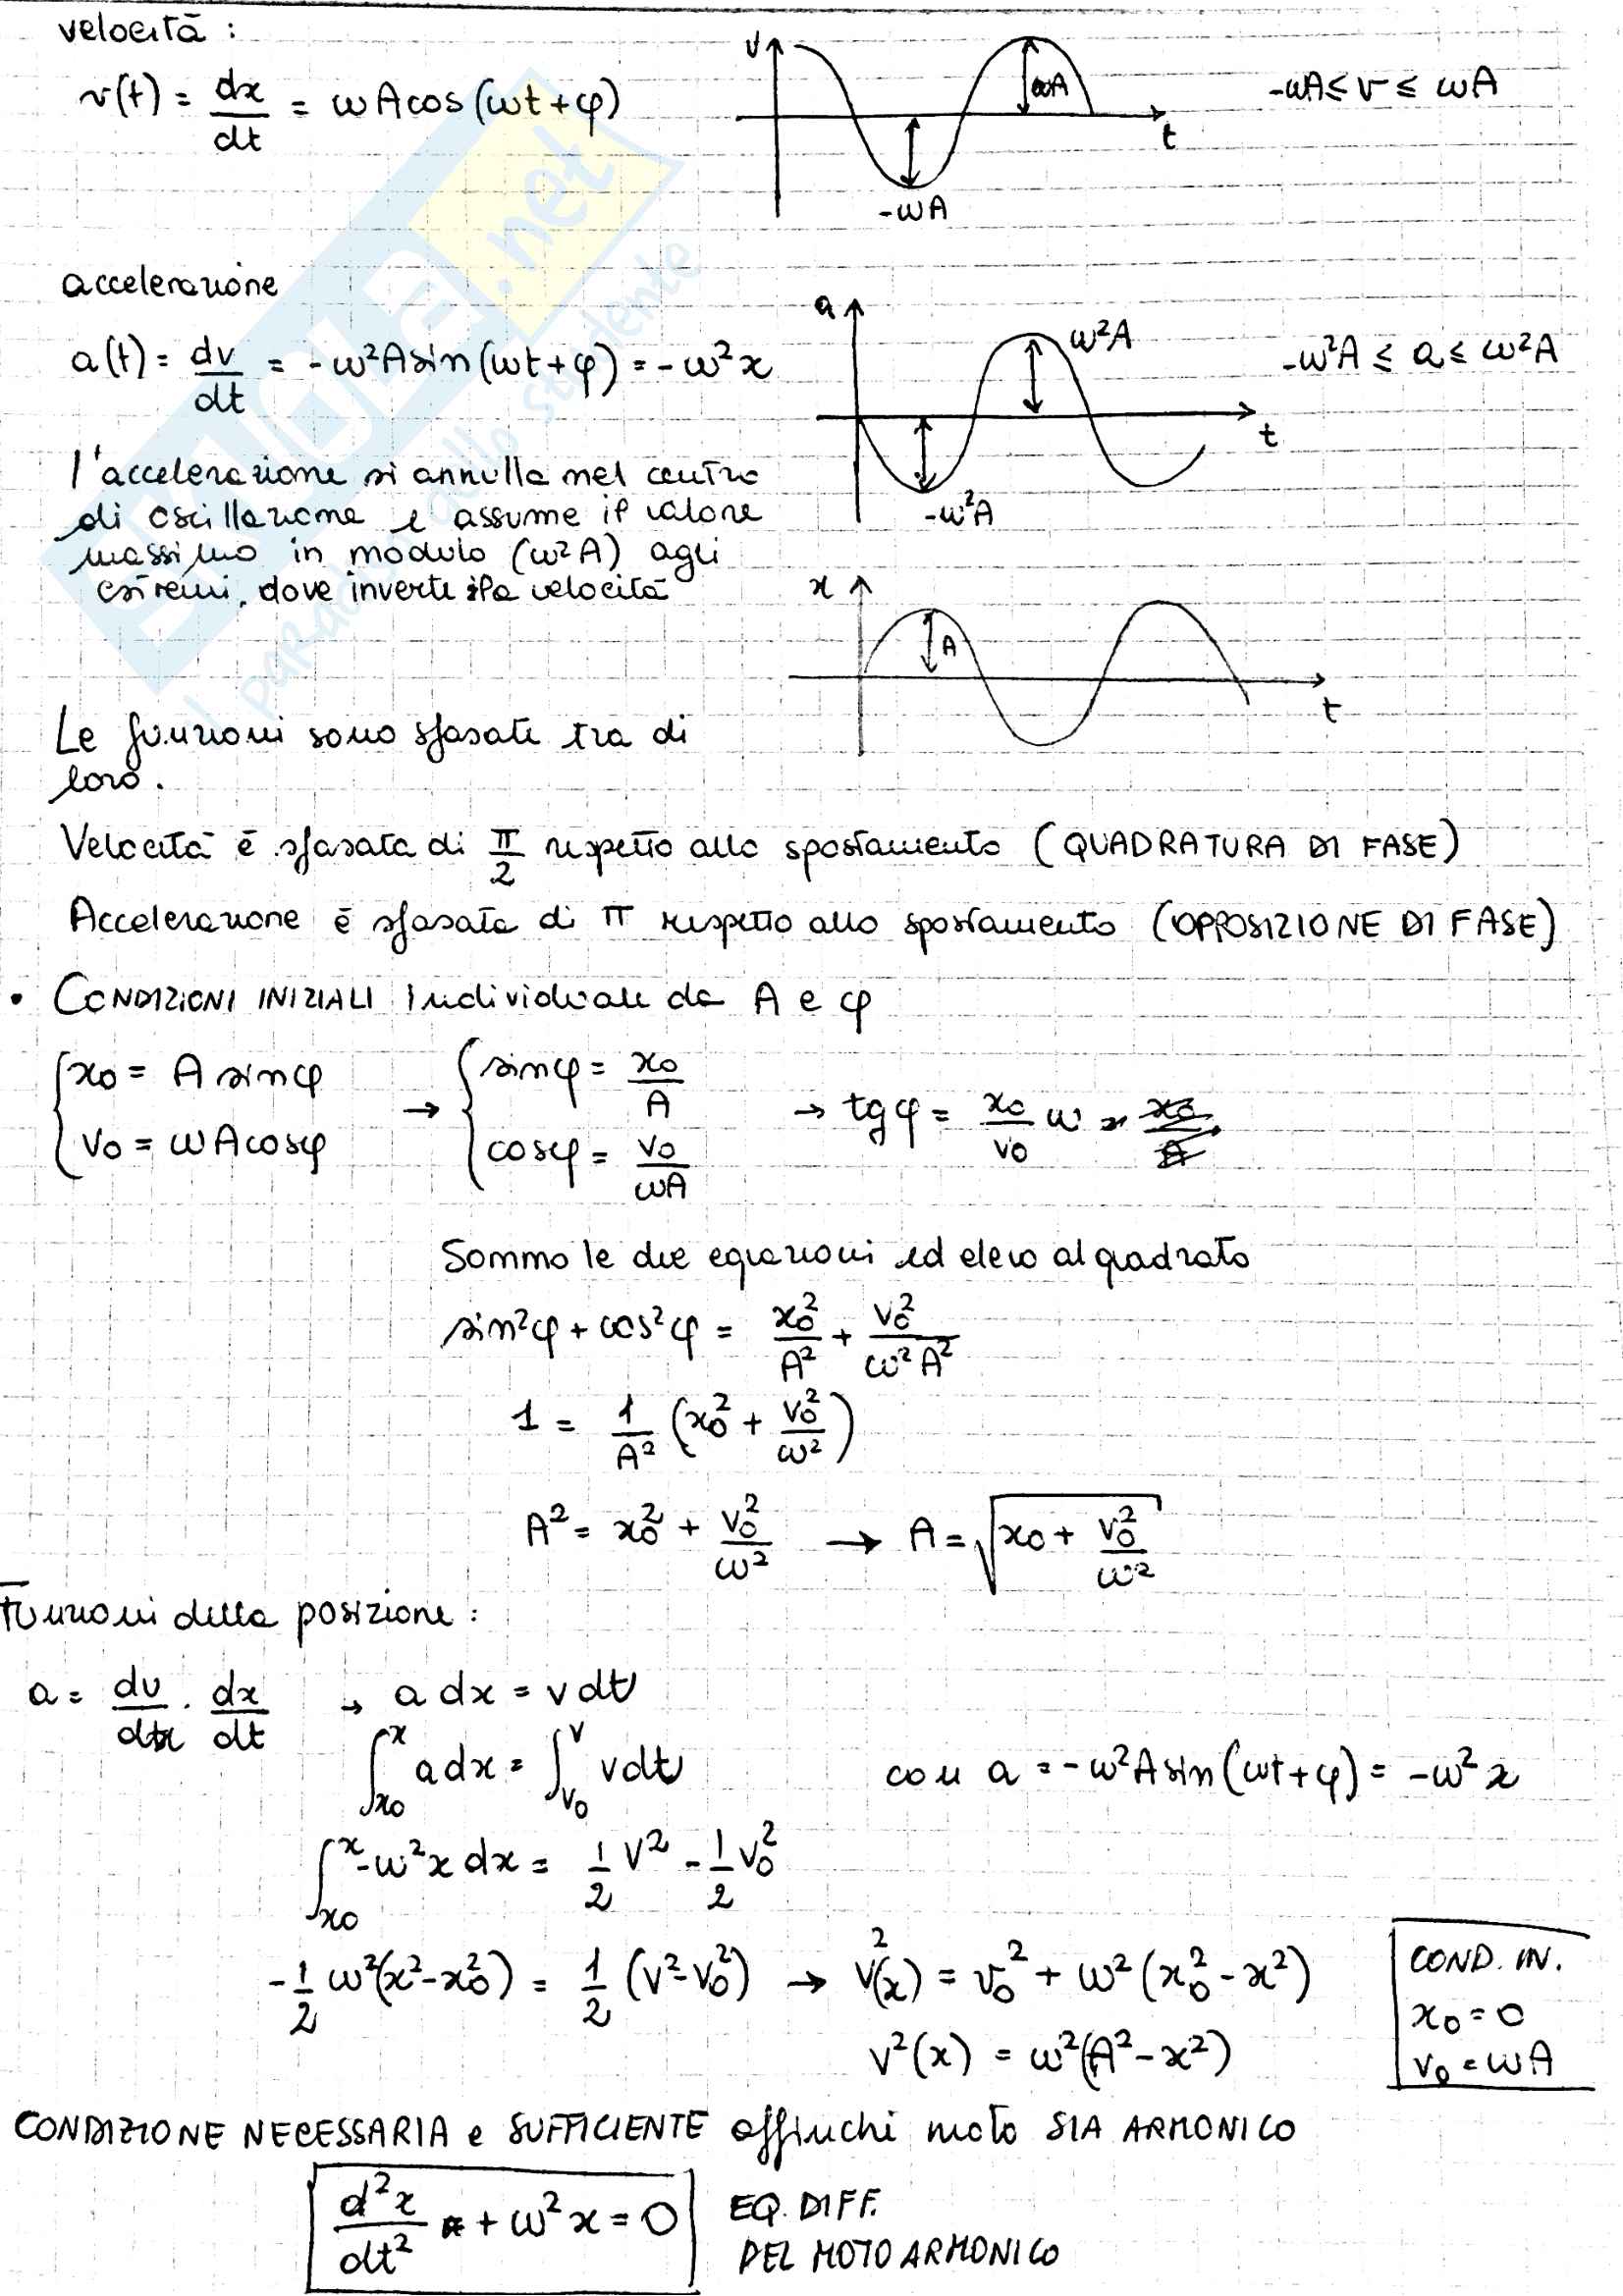 velocità :
v(t) = dx/dt = ωA cos (ωt + φ)
v
ωA
t
-ωA
-ωA ≤ v ≤ ωA
accelerazione
a(t) = dv/dt = -ω²A sin (ωt + φ) = -ω²x
a
ω²A
t
-ω²A
-ω²A ≤ a ≤ ω²A
l'accelerazione si annulla nel centro
di oscillazione e assume il valore
massimo in modulo (ω²A) agli
estremi, dove inverte la velocità
x
A
t
Le funzioni sono sfasate tra di
loro.
Velocità è sfasata di π/2 rispetto allo spostamento (QUADRATURA DI FASE)
Accelerazione è sfasata di π rispetto allo spostamento (OPPOSIZIONE DI FASE)
• CONDIZIONI INIZIALI individuate da A e φ
{ x0 = A sinφ
v0 = ωA cosφ
→ { sinφ = x0/A
cosφ = v0/ωA
→ tg φ = x0/v0 ω
Sommo le due equazioni ed elevo al quadrato
sin²φ + cos²φ = x0²/A² + v0²/ω²A²
1 = 1/A² (x0² + v0²/ω²)
A² = x0² + v0²/ω² → A = √(x0 + v0²/ω²)
Funzioni della posizione :
a = dv/dx · dx/dt → a dx = v dv
∫x0^x a dx = ∫v0^v v dv con a = -ω²A sin (ωt + φ) = -ω²x
∫x0^x -ω²x dx = 1/2 v² - 1/2 v0²
-1/2 ω²(x² - x0²) = 1/2 (v² - v0²) → v²(x) = v0² + ω² (x0² - x²)
v²(x) = ω²(A² - x²)
COND. IN.
x0 = 0
v0 = ωA
CONDIZIONE NECESSARIA e SUFFICIENTE affinchè moto SIA ARMONICO
d²x/dt² + ω²x = 0
EQ. DIFF.
DEL MOTO ARMONICO
.net